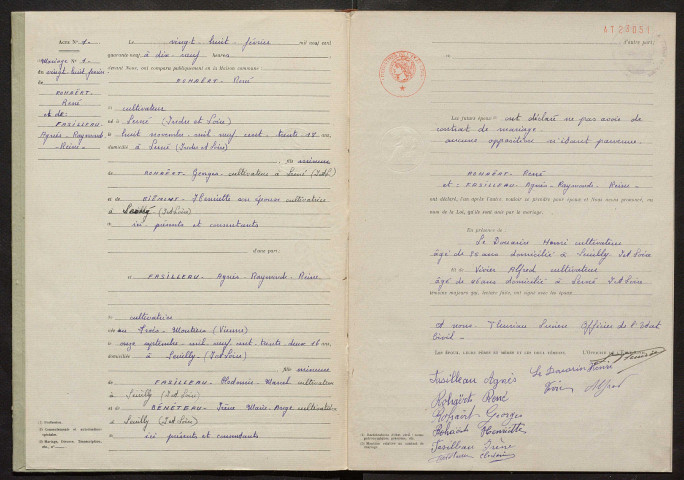 Acte N° 1.
Mariage N° 1.
du vingt huit février
ROHAËRT.
René
et de
FASILLEAU.
Agnès - Raymonde -
Reine -
Le vingt huit février mil neuf cent
quarante neuf à dix neuf heures
devant Nous, ont comparu publiquement en la Maison commune
ROHAËRT René
cultivateur
né à Lerné (Indre et Loire)
le huit novembre mil neuf cent trente 18 ans
domicilié à Lerné (Indre et Loire)
fils mineur
de ROHAËRT Georges cultivateur à Lerné (I et L)
et de Henriette son épouse cultivatrice
à (I et Loire)
ici présents et consentants
d'une part;
et FASILLEAU - Agnès Raymonde - Reine
cultivatrice
née aux Trois Moutiers (Vienne)
le onze septembre mil neuf cent trente deux 16 ans
domiciliée à Seuilly (I et Loire)
fille mineure
de FASILLEAU - Clodomir - Marcel cultivateur
à Seuilly (I et Loire)
et de BENETEAU - Irène Marie - Ange cultivatrice
à Seuilly (I et Loire)
ici présents et consentants
(1) Profession.
d'autre part;
Les futurs époux ont déclaré ne pas avoir de
contrat de mariage.
aucune opposition n'étant parvenue.
ROHAËRT René
et : FASILLEAU - Agnès - Raymonde - Reine -
ont déclaré, l'un après l'autre, vouloir se prendre pour époux et Nous avons prononcé, au
nom de la Loi, qu'ils sont unis par le mariage.
En présence de :
Le Douarin Henri cultivateur
âgé de 52 ans domicilié à Seuilly I et Loire
Et de Vivier Alfred cultivateur
âgé de 46 ans domicilié à Lerné I et Loire
témoins majeurs qui, lecture faite, ont signé avec les époux
et nous Officier de l'état
Civil -
Fasilleau Agnès
Le Douarin Henri
Alfred
Rohaërt René
Rohaërt Georges
Rohaërt Henriette
Fasilleau Irène